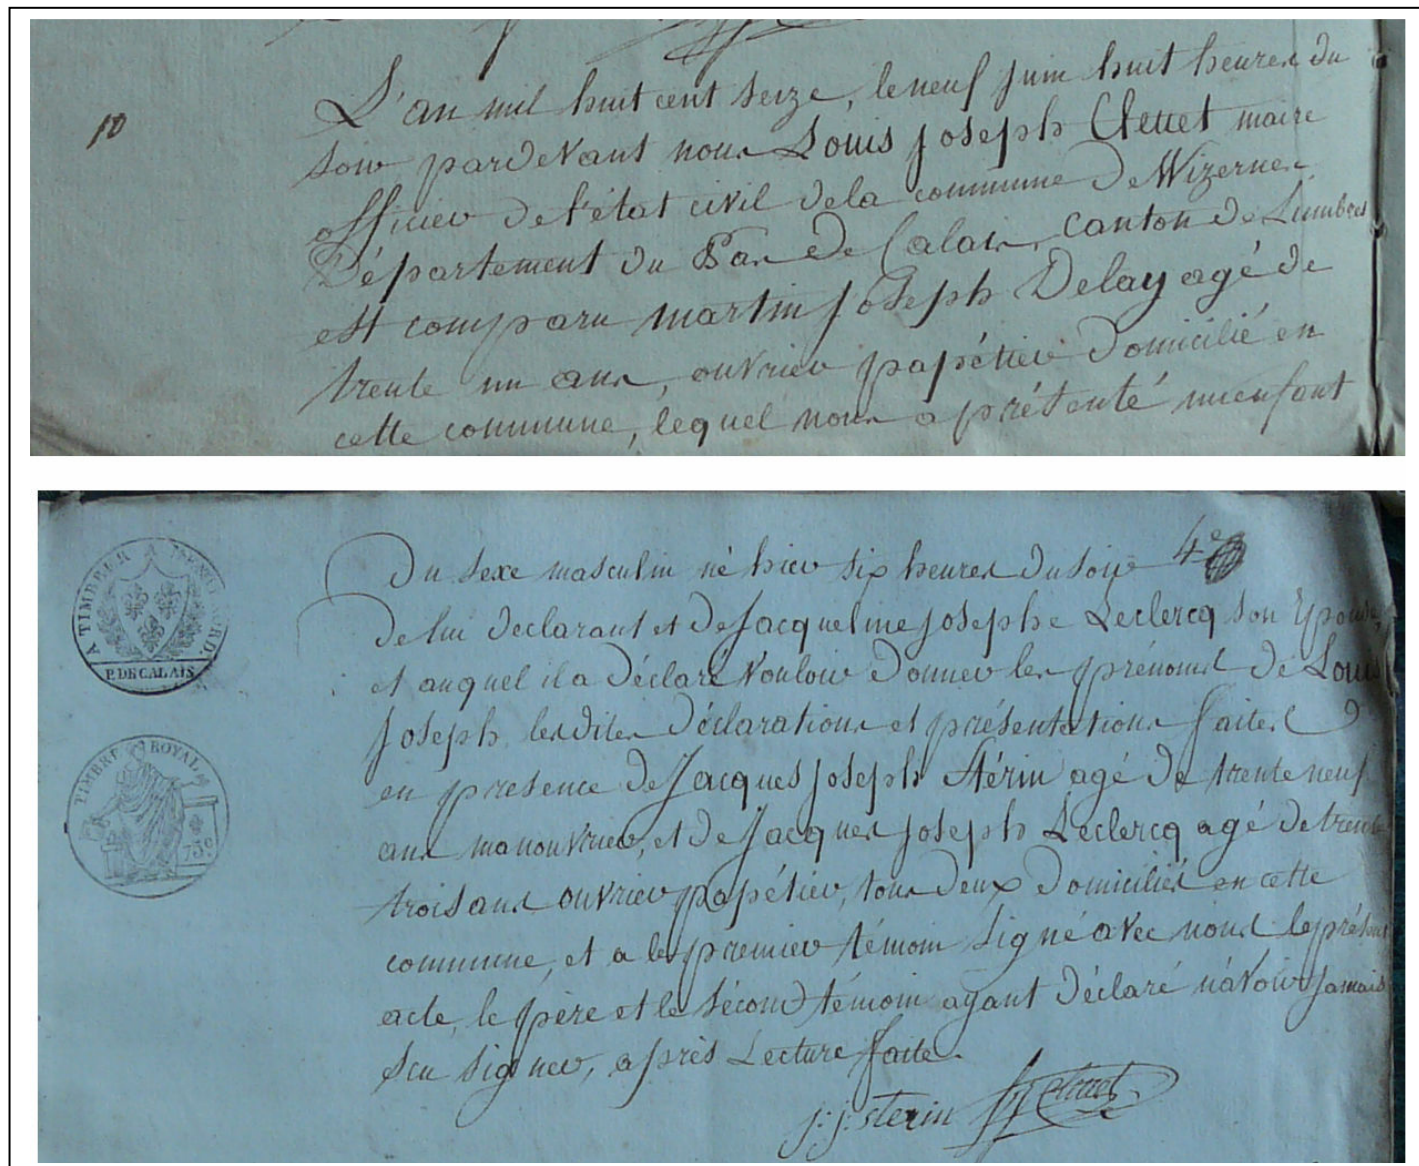 10
L'an mil huit cent seize, le neuf juin huit heures du
soir pardevant nous Louis Joseph Clettet maire
officier de l'état civil de la commune de Wizernes
Département du Pas de Calais, canton de Lumbres
est comparu martin Joseph Delay agé de
trente un ans, ouvrier papétier domicilié en
cette commune, lequel nous a présenté un enfant
A TIMBRER A L'EXTRAORD.
P. DE CALAIS
TIMBRE ROYAL
75c
4e
Du sexe masculin né hier six heures du soir
de lui declarant et de Jacqueline Josephe Leclercq son Epouse,
et auquel il a déclaré vouloir donner les prénoms de Louis
Joseph. lesdites déclarations et présentations faites
en presence de Jacques Joseph Stérin agé de trente neuf
ans manouvrier, et de Jacques Joseph Leclercq agé de trente
trois ans ouvrier papétier, tous deux domiciliés en cette
commune, et a le premier témoin signé avec nous le présent
acte, le père et le second témoin ayant déclaré n'avoir jamais
seu signer, après Lecture faite.
j: j: sterin